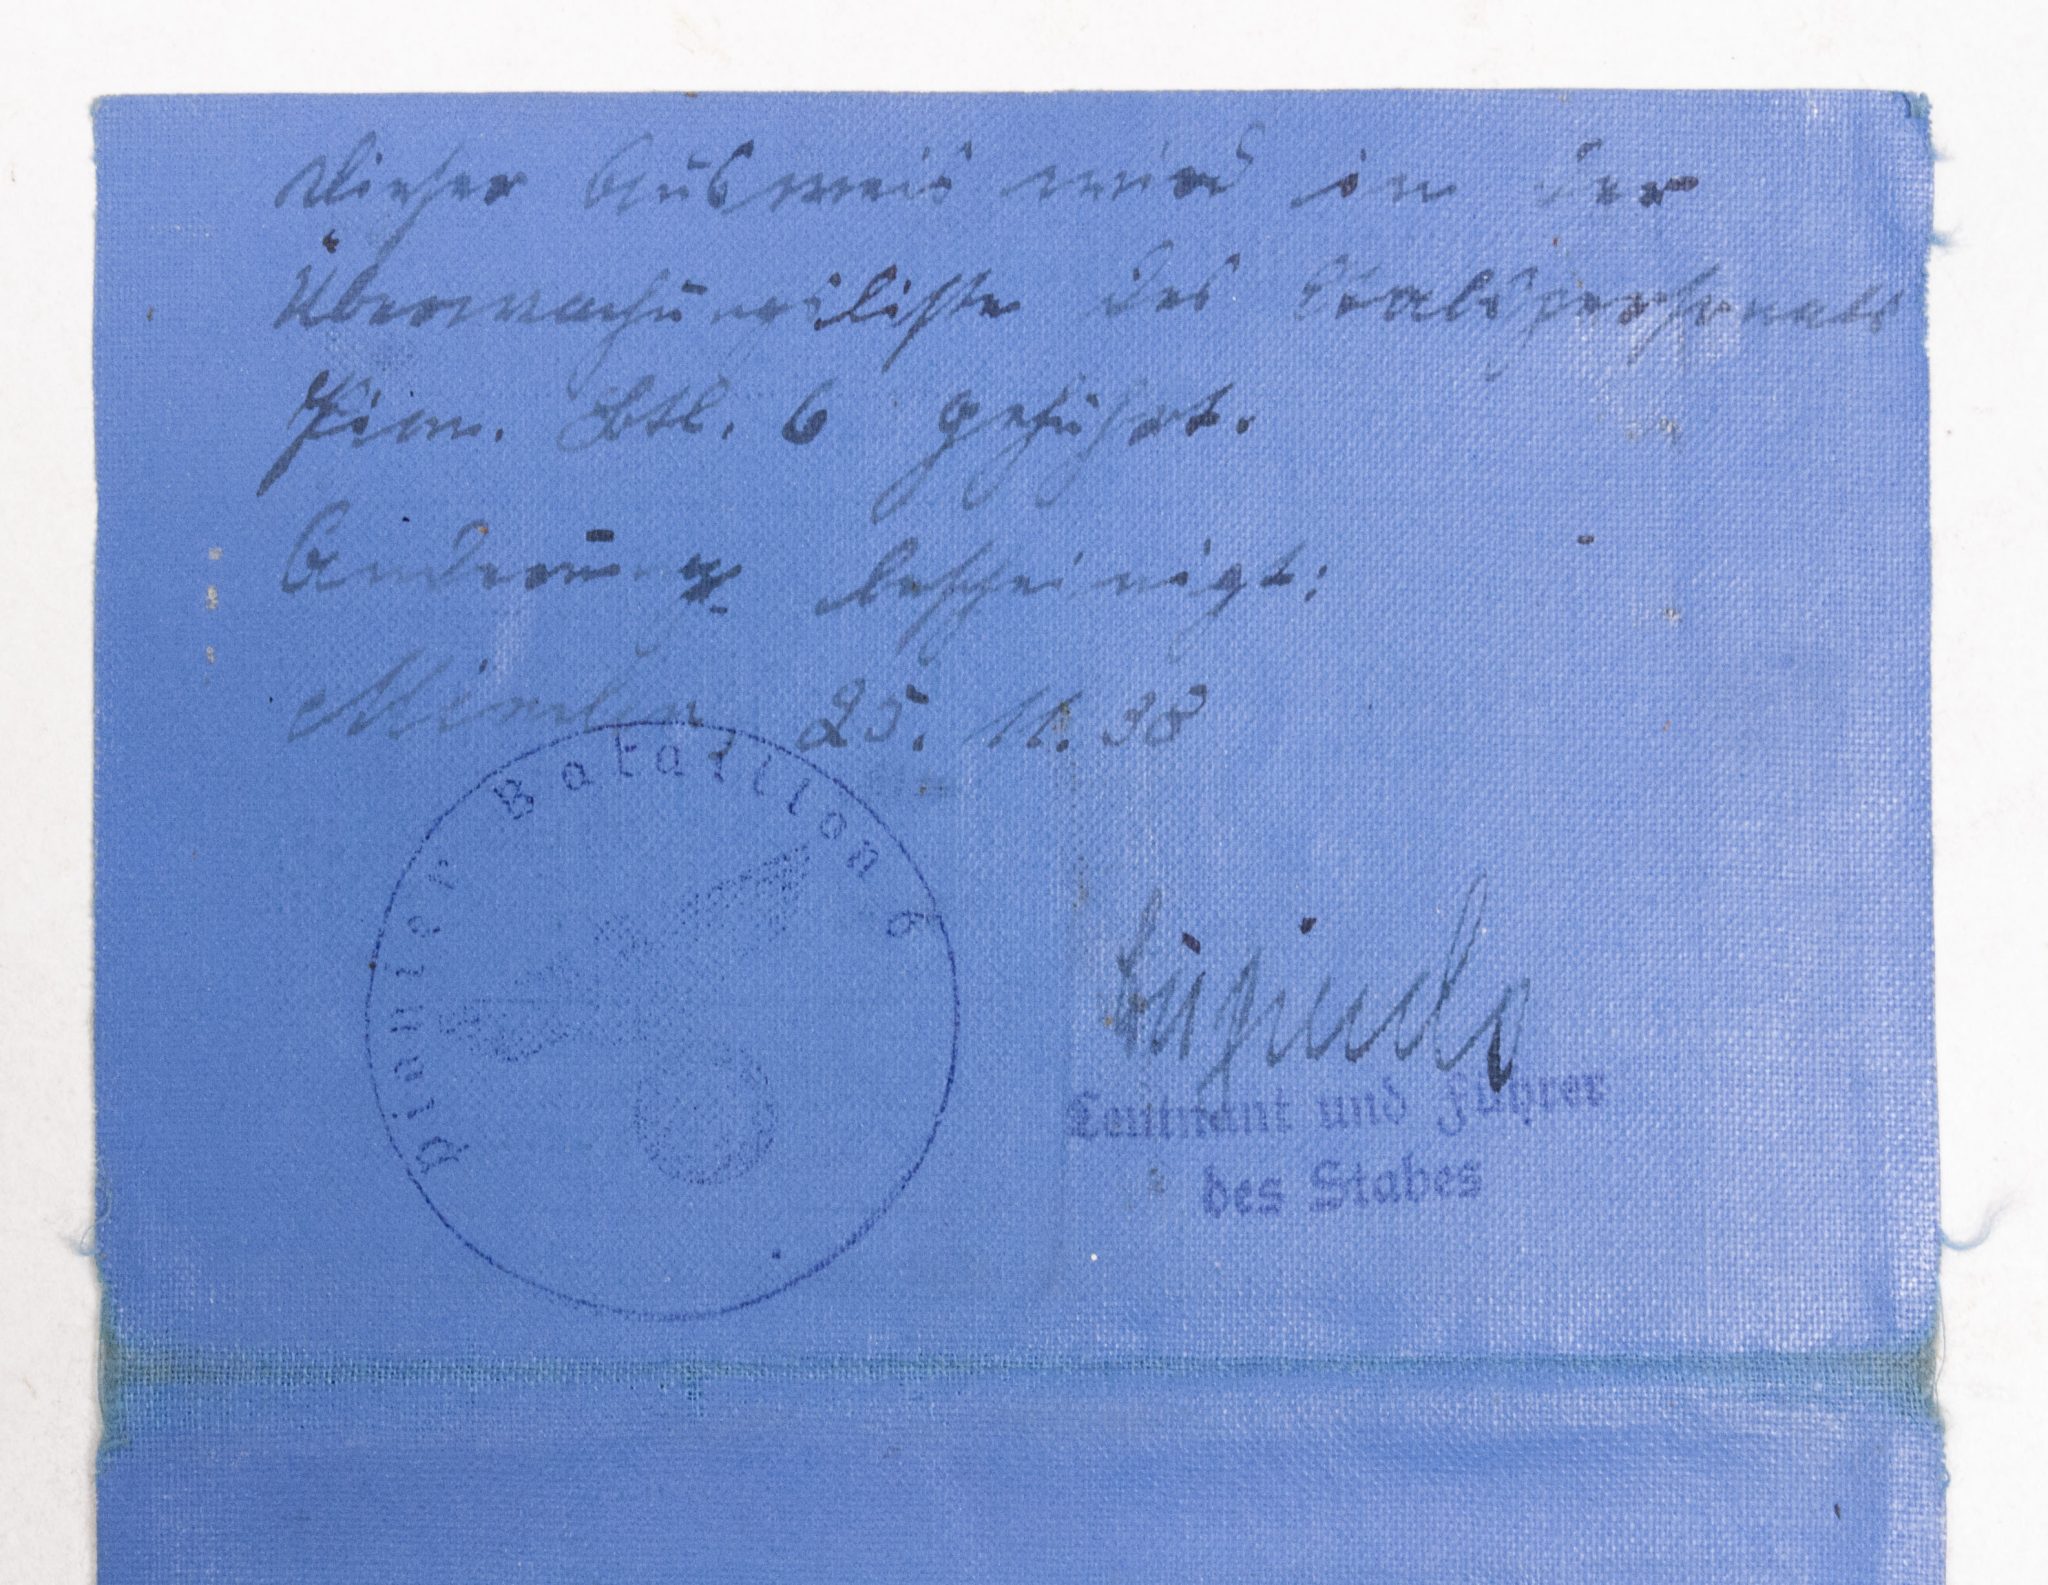 Dieser Ausweis wird in der
Überwachungsliste des Stabspersonals
Pion. Btl. 6 geführt.
Änderung bescheinigt:
Minden, 25. 11. 38
Pionier Bataillon 6
Leutnant und Führer
des Stabes